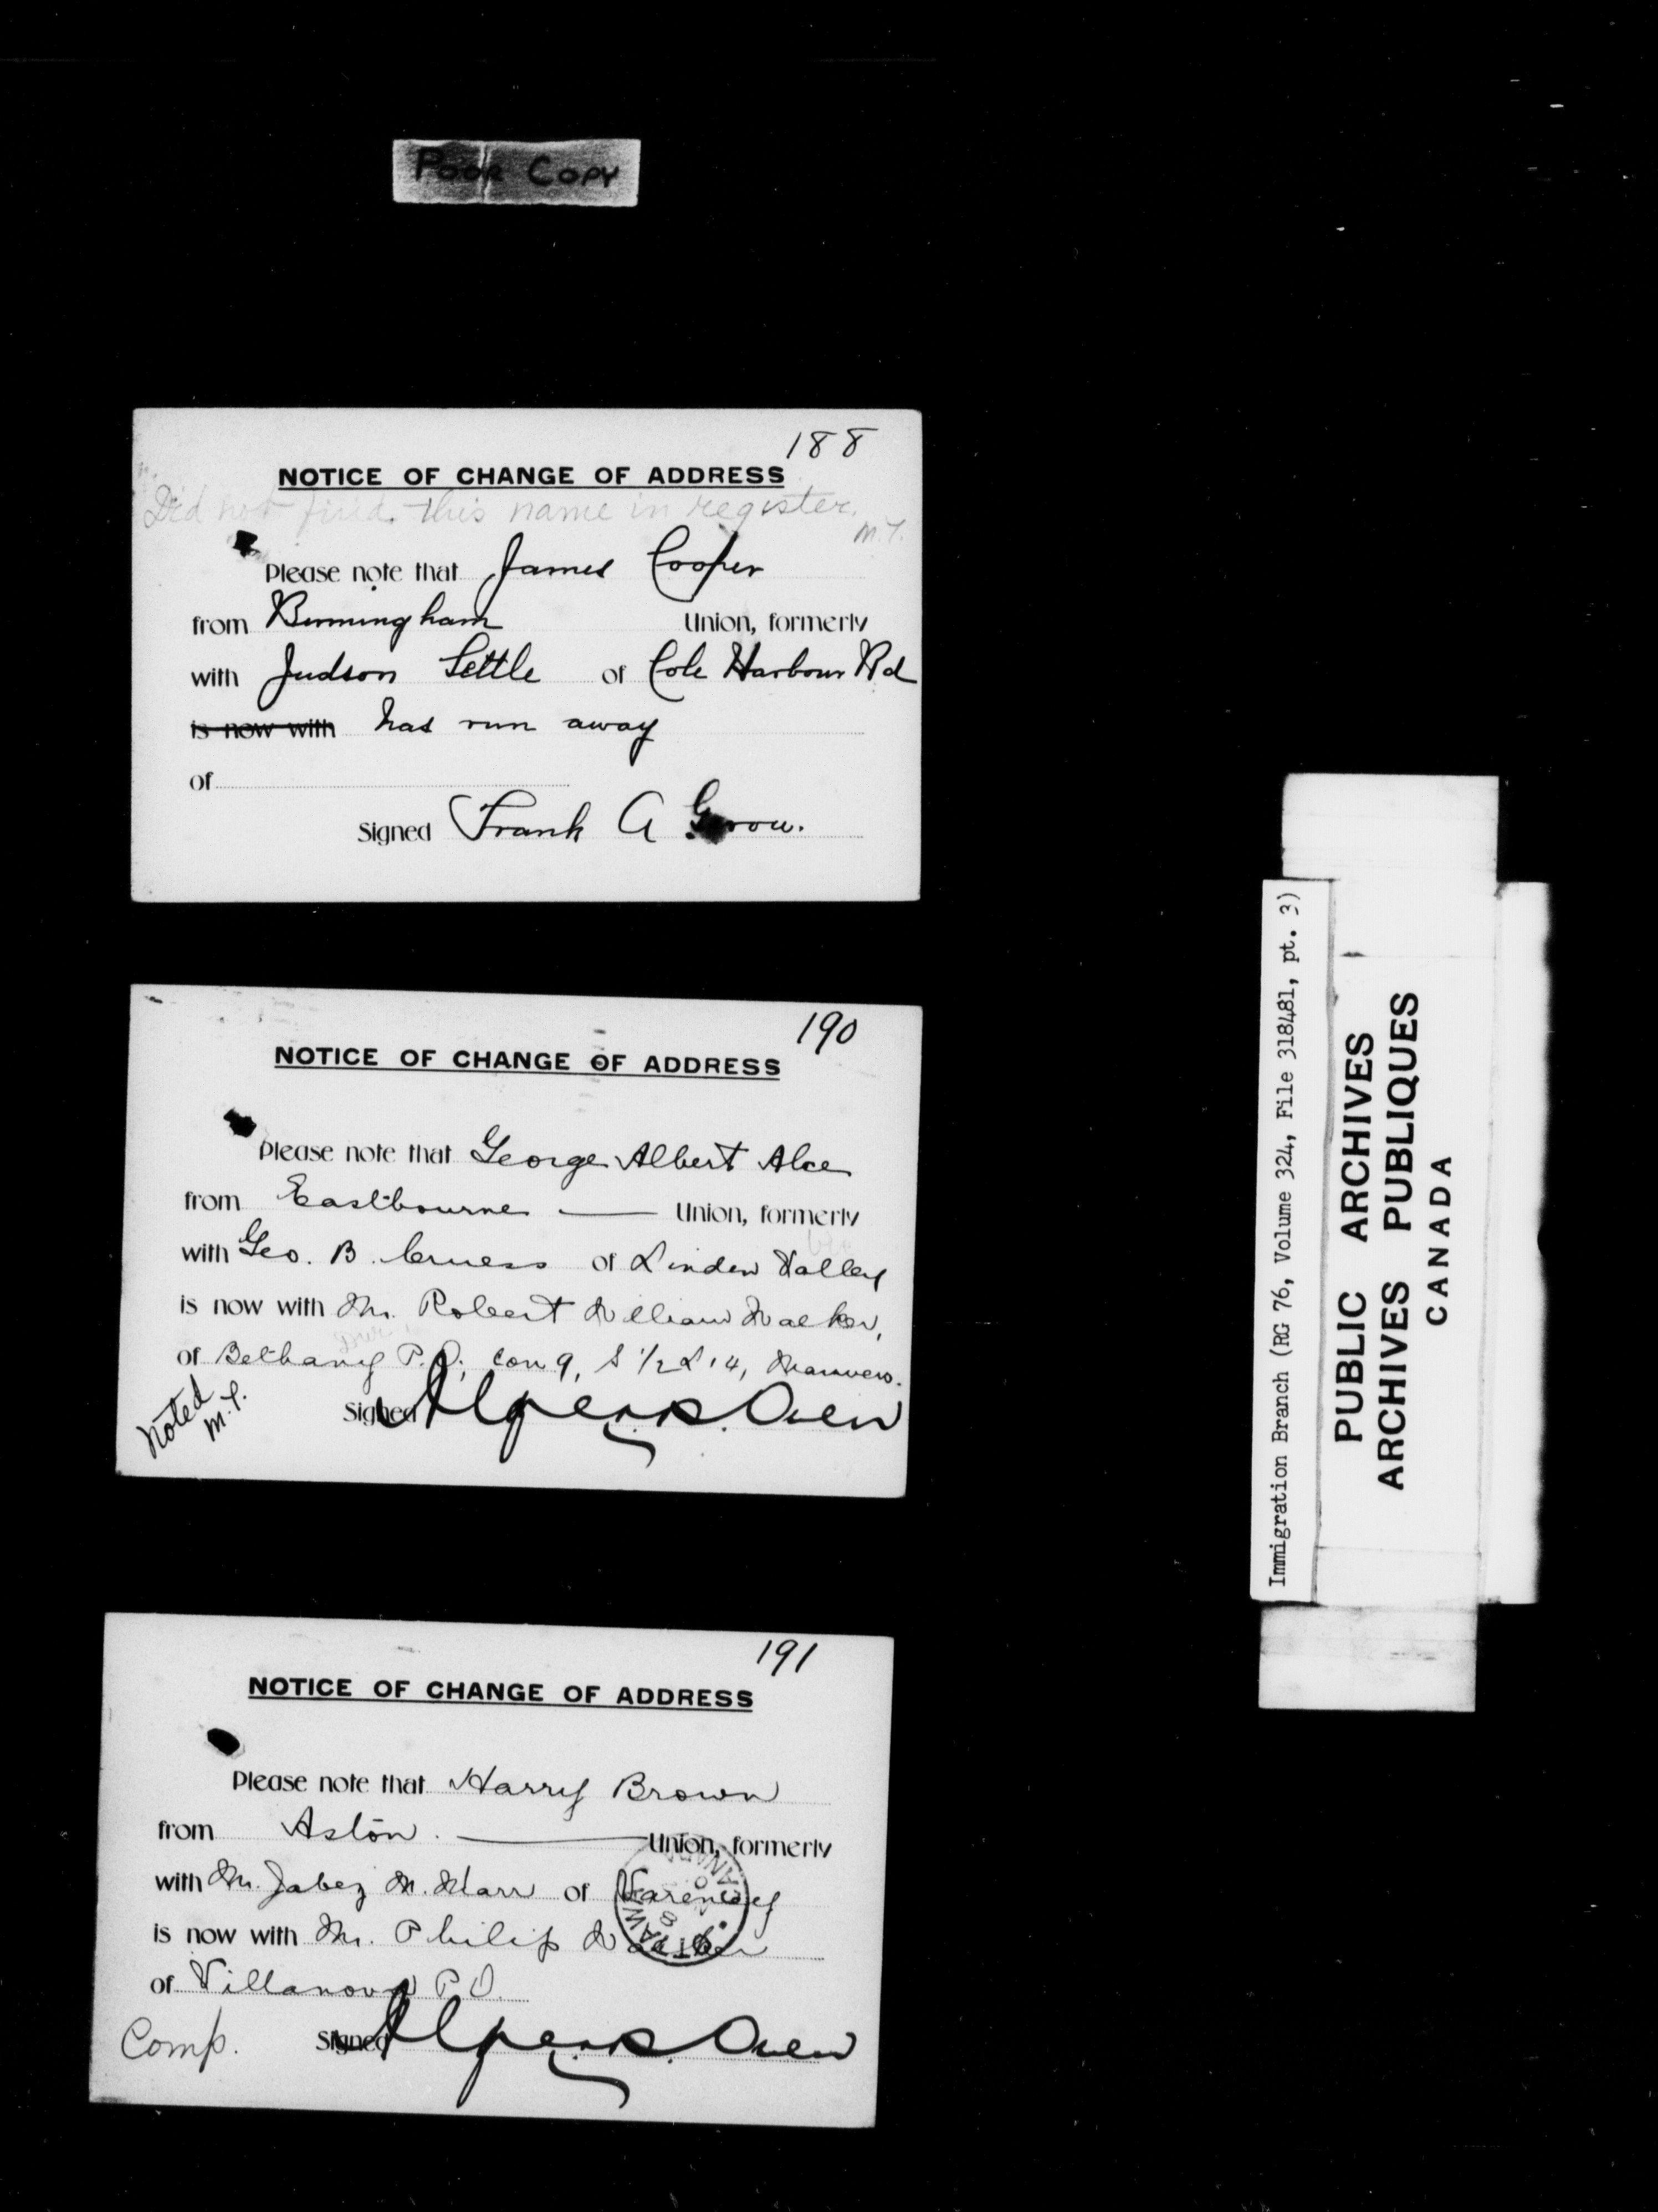 POOR COPY
188
NOTICE OF CHANGE OF ADDRESS
Did not find this name in register.
M.T.
Please note that James Cooper
from Birmingham Union, formerly
with Judson Settle of Cole Harbour Rd
is now with has run away
of
Signed Frank A
190
NOTICE OF CHANGE OF ADDRESS
Please note that George Albert Alce
from Eastbourne — Union, formerly
with Geo. B. of Linden Valley
is now with Mr. Robert William Walker,
of Bethany P.O., Con 9, S 1/2 L 14, Manvers.
Noted
M.T.
Signed Owen
191
NOTICE OF CHANGE OF ADDRESS
Please note that Harry Brown
from Aston. — Union, formerly
with Mr. Jabez M. Marr of Varency
is now with Mr. Philip
of Villanova P.O.
Comp. Signed Owen
Immigration Branch (RG 76, Volume 324, File 318481, pt. 3)
PUBLIC ARCHIVES
ARCHIVES PUBLIQUES
CANADA